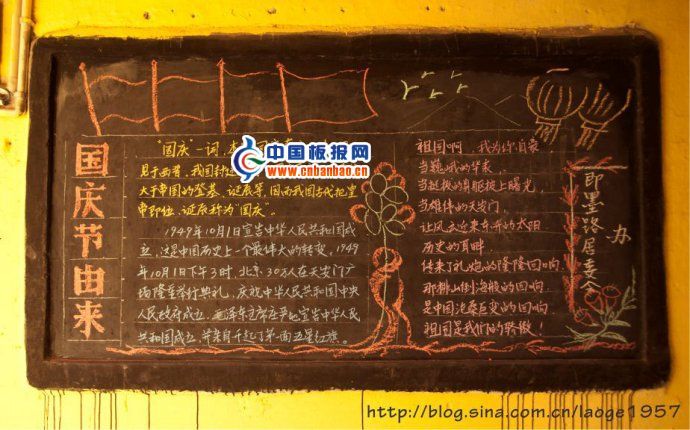 国庆节由来
"国庆"一词,本
中国板报网
www.cnbanbao.cn
见于西晋,我国封建
大于帝国的登基、诞辰等,因而我国古代把皇
帝即位、诞辰称为"国庆"。
1949年10月1日宣告中华人民共和国成
立,这是中国历史上一个最伟大的转变。1949
年10月1日下午3时,北京30万人在天安门广
场隆重举行典礼,庆祝中华人民共和国中央
人民政府成立。毛泽东主席庄严地宣告中华人民
共和国成立,并亲自升起了第一面五星红旗。
祖国啊,我为你自豪
当巍峨的华表,
当挺拔的身躯披上曙光,
当雄伟的天安门,
让风 来东升的太阳
历史的耳畔,
传来了礼炮的隆隆回响,
那排山倒海般的回响,
是中国沧桑巨变的回响。
祖国是我们的骄傲!
即墨路居委会
办
http://blog.sina.com.cn/laoge1957